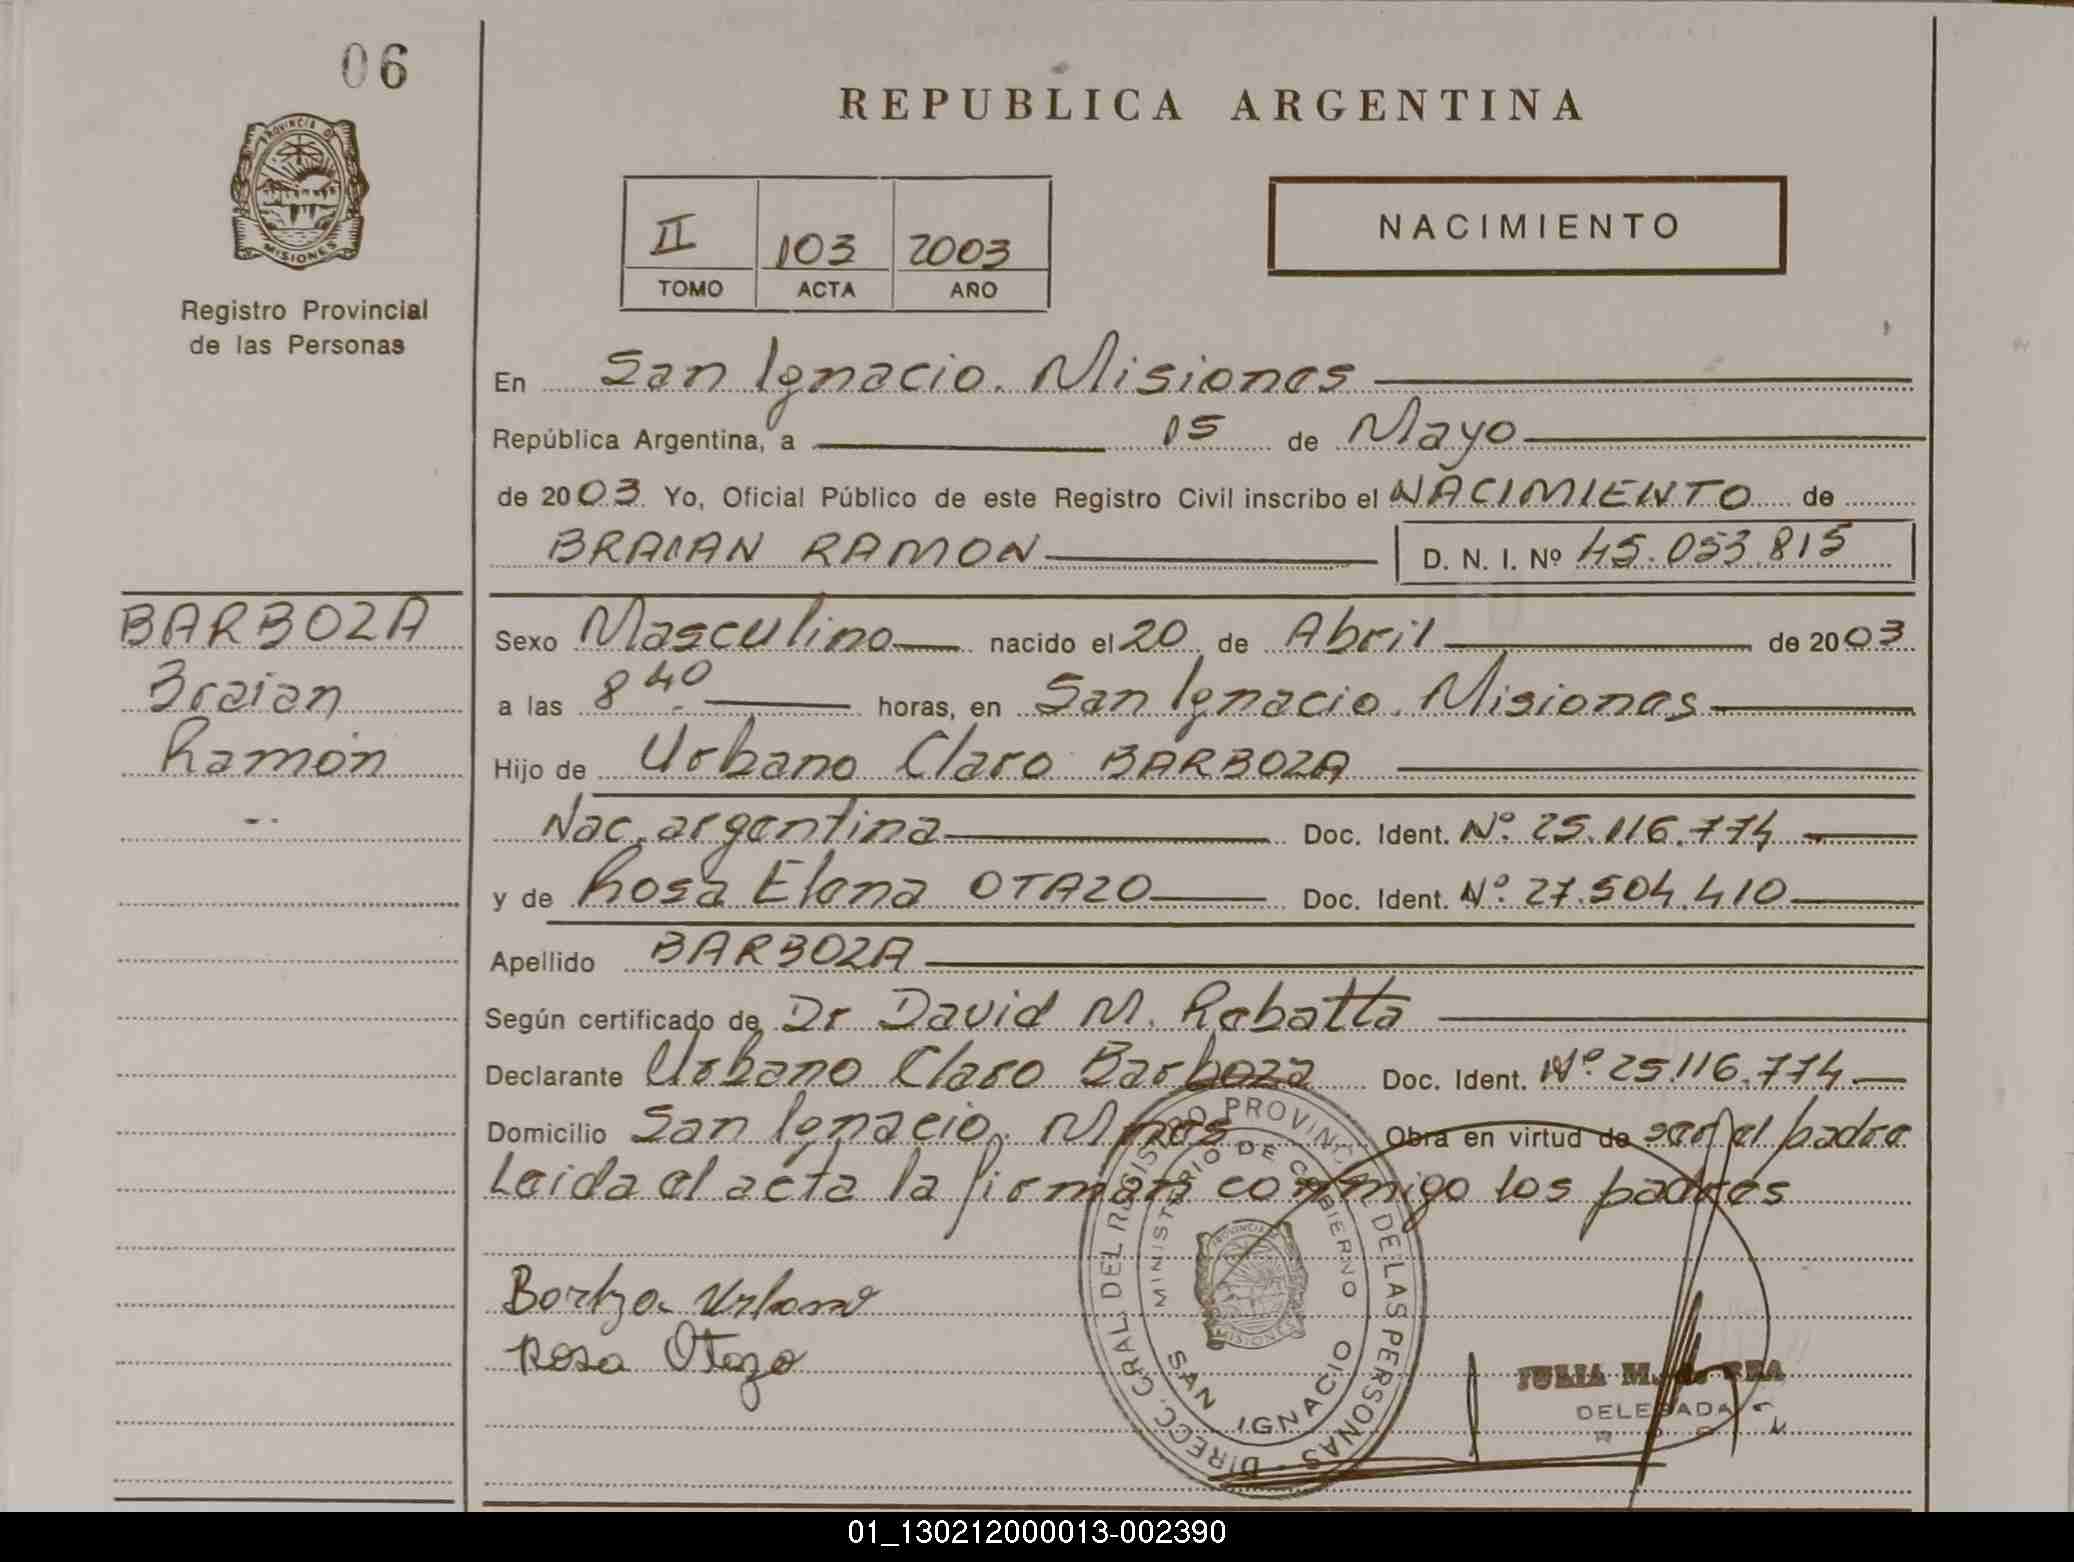 06
REPUBLICA ARGENTINA
PROVINCIA DE
MISIONES
Registro Provincial
de las Personas
II 103 2003
TOMO ACTA AÑO
NACIMIENTO
En San Ignacio. Misiones
República Argentina, a 15 de Mayo
de 2003. Yo, Oficial Público de este Registro Civil inscribo el NACIMIENTO de
BRAIAN RAMON D. N. I. Nº 45.053.815
BARBOZA
Braian
Ramón
Sexo Masculino nacido el 20 de Abril de 2003
a las 8 40 horas, en San Ignacio. Misiones
Hijo de Urbano Claro BARBOZA
Nac. argentina Doc. Ident. Nº. 25.116.774
y de Rosa Elena OTAZO Doc. Ident. Nº. 27.504.410
Apellido BARBOZA
Según certificado de Dr David M. Rebatta
Declarante Urbano Claro Barboza Doc. Ident. Nº 25.116.774
Domicilio San Ignacio, Mnes Obra en virtud de ser el padre
Leida el acta la firman conmigo los padres
Urbano
Rosa Otazo
DIRECC. GRAL. DEL REGISTRO PROVINCIAL DE LAS PERSONAS
MINISTERIO DE GOBIERNO
SAN IGNACIO
MISIONES
JULIA M.
DELEGADA
01_130212000013-002390